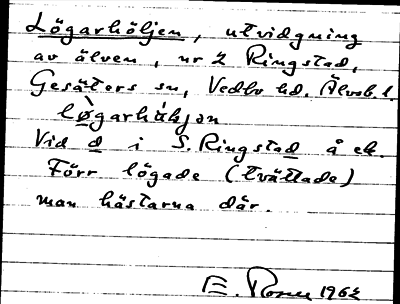 Lögarhöljen, utvidgning
av älven, nr 2 Ringstad,
Gesäters sn, Vedbo hd. Älvsb. l.
lø̀garhǿljən
Vid d i S. Ringstad å ek.
Förr lögade (tvättade)
man hästarna där.
E. 1962